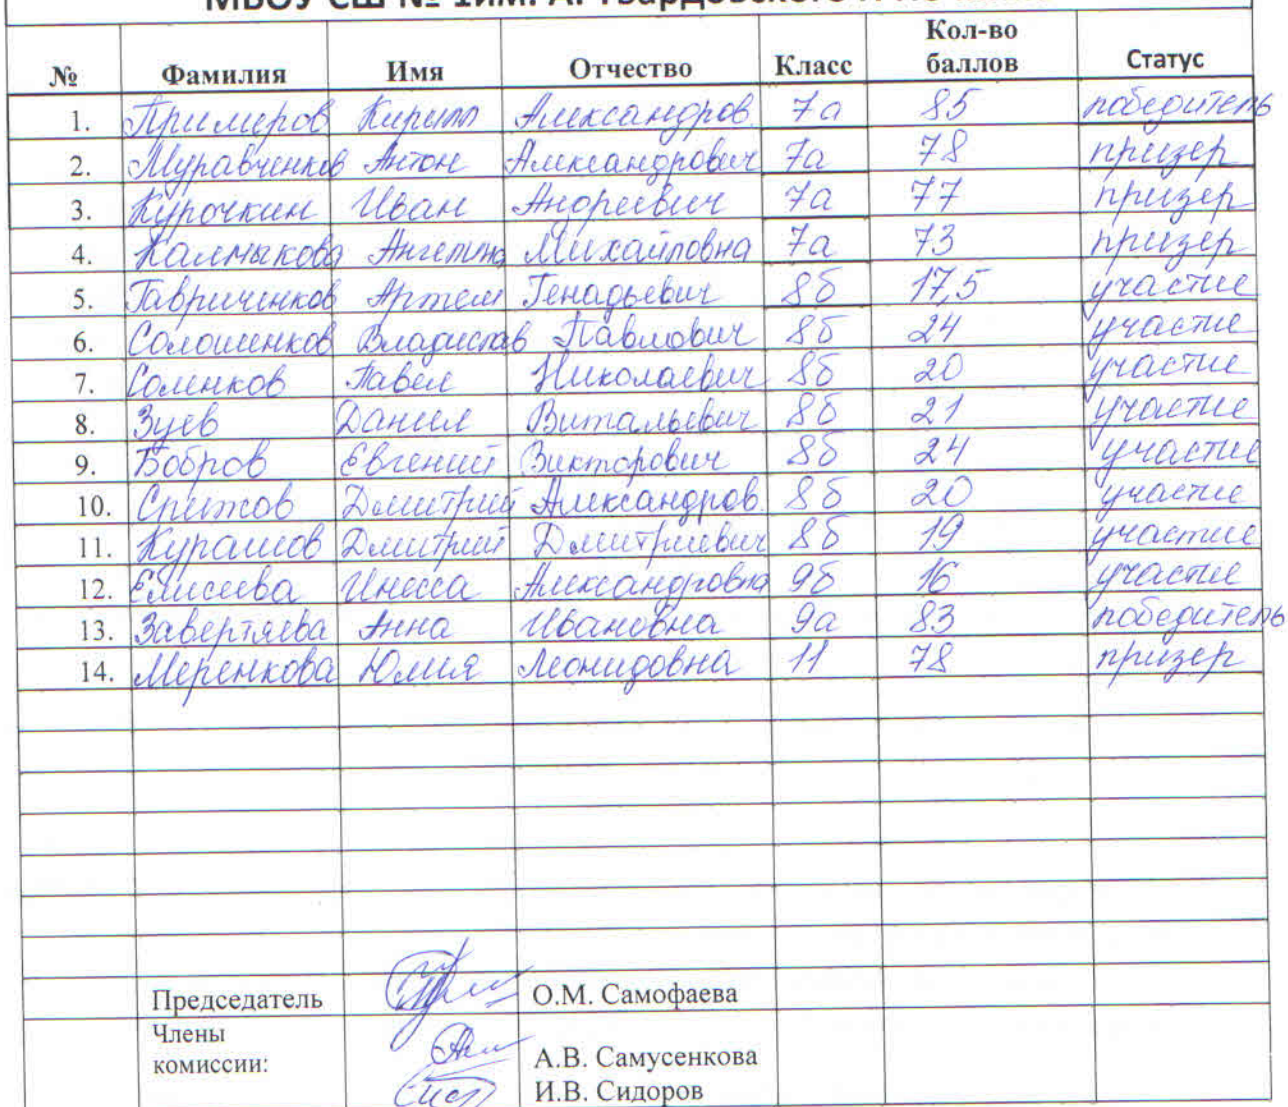 МБОУ СШ № 1им. А. Твардовского
№ Фамилия Имя Отчество Класс Кол-во баллов Статус
1. Примеров Кирилл Александров. 7а 85 победитель
2. Муравченков Антон Александрович 7а 78 призер
3. Курочкин Иван Андреевич 7а 77 призер
4. Калмыкова Ангелина Михайловна 7а 73 призер
5. Гавриченков Артем Генадьевич 8б 17,5 участие
6. Солошенков Владислав Павлович 8б 24 участие
7. Соленков Павел Николаевич 8б 20 участие
8. Зуев Данил Витальевич 8б 21 участие
9. Бобров Евгений Викторович 8б 24 участие
10. Дмитрий Александров. 8б 20 участие
11. Курашов Дмитрий Дмитриевич 8б 19 участие
12. Елисеева Инесса Александровна 9б 16 участие
13. Завертяева Анна Ивановна 9а 83 победитель
14. Меренкова Юлия Леонидовна 11 78 призер
Председатель О.М. Самофаева
Члены
комиссии: А.В. Самусенкова
И.В. Сидоров